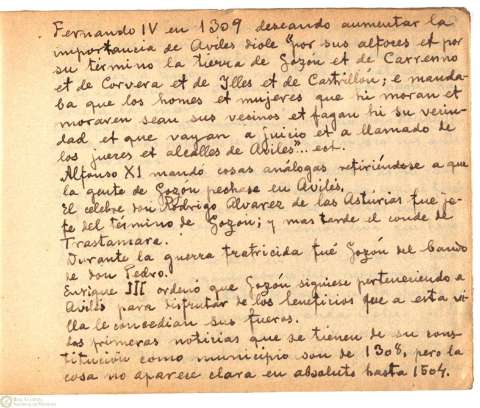 Fernando IV en 1309 deseando aumentar la
importancia de Aviles diole "por sus alfores et por
su término la tierra de Gozón et de Carrenno
et de Corvera et de Illes et de Castrillón; e manda-
ba que los homes et mujeres que hi moran et
moraren sean sus vecinos et fagan hi su vecin-
dad et que vayan a juicio et a llamado de
los jueces et alcalles de Aviles"... est.
Alfonso XI mandó cosas análogas refiriéndose a que
la gente de Gozón pechase en Avilés,
El celebre don Rodrigo Alvarez de las Asturias fue je-
fe del término de Gozón; y mas tarde el conde de
Trastamara.
Durante la guerra fratricida fué Gozón del bando
de don Pedro.
Enrique III ordenó que Gozón siguiese perteneciendo a
Avilés para disfrutar de los beneficios que a esta vi-
lla le concedian sus fueros.
Las primeras noticias que se tienen de su cons-
titución como municipio son de 1308, pero la
cosa no aparece clara en absoluto hasta 1504.